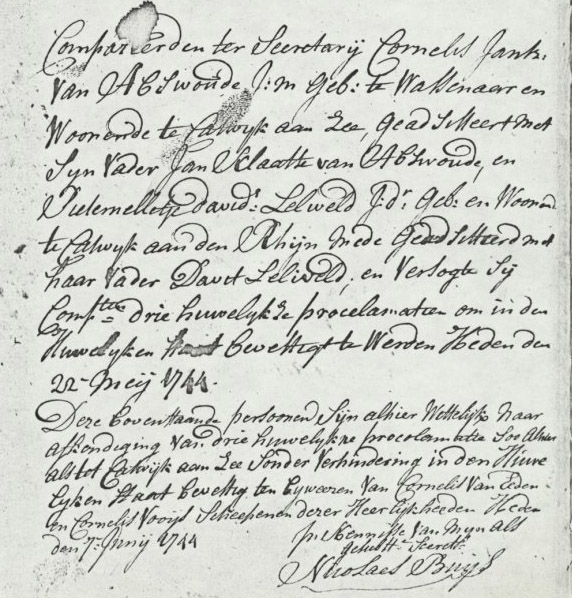 Compareerden ter Secretarij Cornelis Jansz:
van Abswoude J:m Geb: te Wassenaar en
Woonende te Catwyk aan Zee, geadsisteert met
Syn Vader Jan Klaasse van Abswoude, en
David: Lelweld J:dr. Geb: en Woonend
te Catwyk aan den Rhijn mede geadsisteerd met
haar Vader Davit Leliveld, en Versogte Sij
Compten drie huwelykse proclamatien om in den
Huwelyken Staat bevestigt te Werden Heden den
22 Meij 1744.
Deze bovenstaande persoonen Sijn alhier Wettelijk naar
afkondiging Van drie huwelykse proclamatie Soo Alhier
als tot Catwijk aan Zee Sonder Verhindering in den Huwe
lyken Staat bevestig ten bywezen Van Cornelis Van Eeden
en Cornelis Vooijs Scheepenen dezer Heerlijkheeden Heden
den 7: Junij 1744
In Kennisse Van Mijn als
Secrets.
Nicolaes Buijs